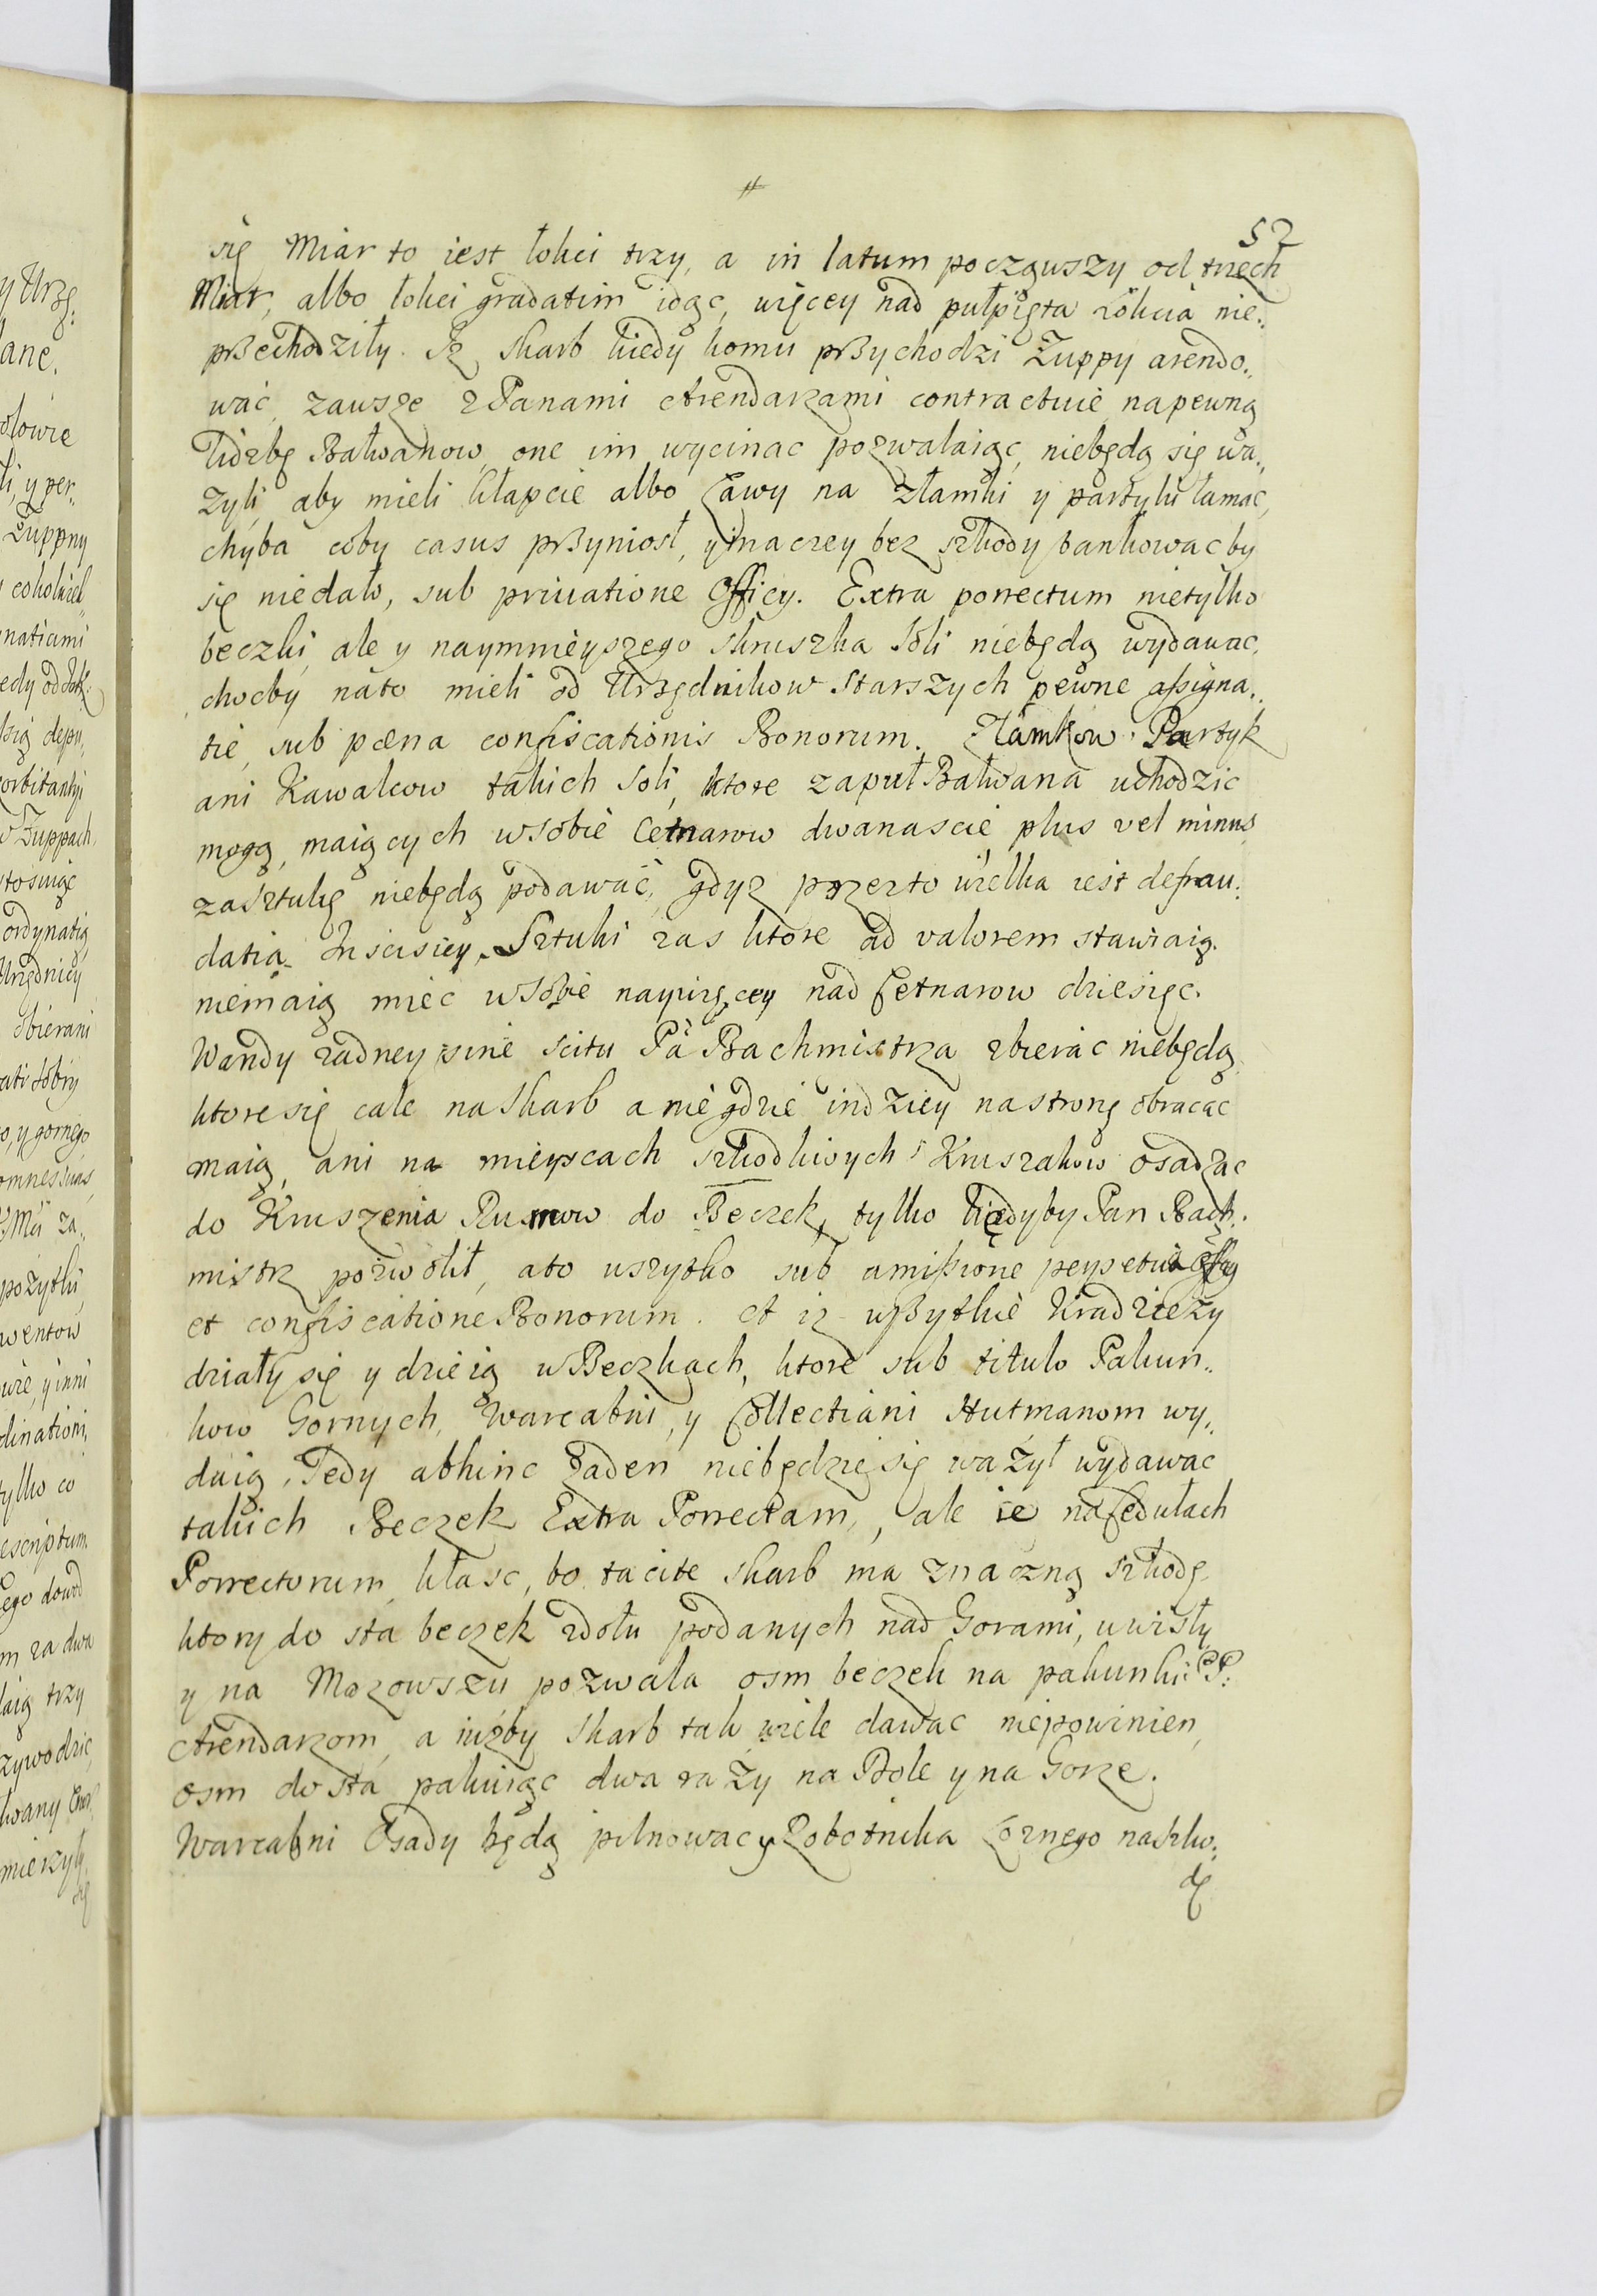 #
52
się Miar to iest łokci trzy, a in latum począwszy od trzech
Miar, albo łokci gradatim idąc, więcey nad pułpięta Łokcia nie..
przechodziły. Iż skarb kiedy komu przychodzi Żuppy arendo..
wać, zawsze z Panami Arendarzami contractuie, na pewną
liczbę Bałwanow, one im wycinac pozwalaiąc, niebędą się wa..
żyli, aby mieli kłapcie albo Ławy na złamki y partyki łamac,
chyba coby casus przyniosł, y inaczey bez szkody bankowac by
się niedało, sub priuatione Officy. Extra porrectum nietylko
beczki, ale y naymnieyszego kruszka soli niebędą wydawac,
chocby nato mieli od Urzędnikow Starszych pewne assigna..
tie, sub pæna confiscationis Bonorum. Złamkow Partyk
ani Kawalcow takich soli, ktore zapuł Bałwana uchodzic
mogą, maiących wsobie Cetnarow dwanascie, plus vel minus
zasztukę niebędą podawać, gdyz przezto wielka iest defrau:
datia Sztuki zas ktore ad valorem stawiaią.
niemaią miec wsobie naywięcey nad Cetnarow dziesięc.
Wandy zadney sine scitu Pa Bachmistrza zbierac niebędą
ktore się cale na skarb a niegdzie indziey nastronę obracac
maią, ani na mieyscach szkodliwych Kruszakow osadzac
do Kruszenia Rumow do Beczek, tylko kiedyby Pan Bach..
mistrz pozwolił, ato wszytko sub amissione perpetua Officy
et confiscatione Bonorum. A iz wszytkie Kradzieży
działy się y dzieią w Beczkach, ktore sub titulo Pakun..
kow Gornych, Warcabni, y Collectiani Hutmanom wy..
daią, Tedy abhinc żaden niebędzie się ważył wydawac
takich Beczek Extra Porrectam, ale ie na Cedułach
Porrectorum kłasc, bo tacite skarb ma znaczną szkodę
ktory do sta beczek zdołu podanych nad Gorami, u wisły
y na Mazowszu pozwala osm beczek na pakunki PP:
Arendarzom, a iużby skarb tak wiele dawac niepowinien,
osm do sta pakuiąc dwa razy na Dole y na Gorze.
Warcabni Osady będą pilnowac y Robotnika rznego naszko:
dę